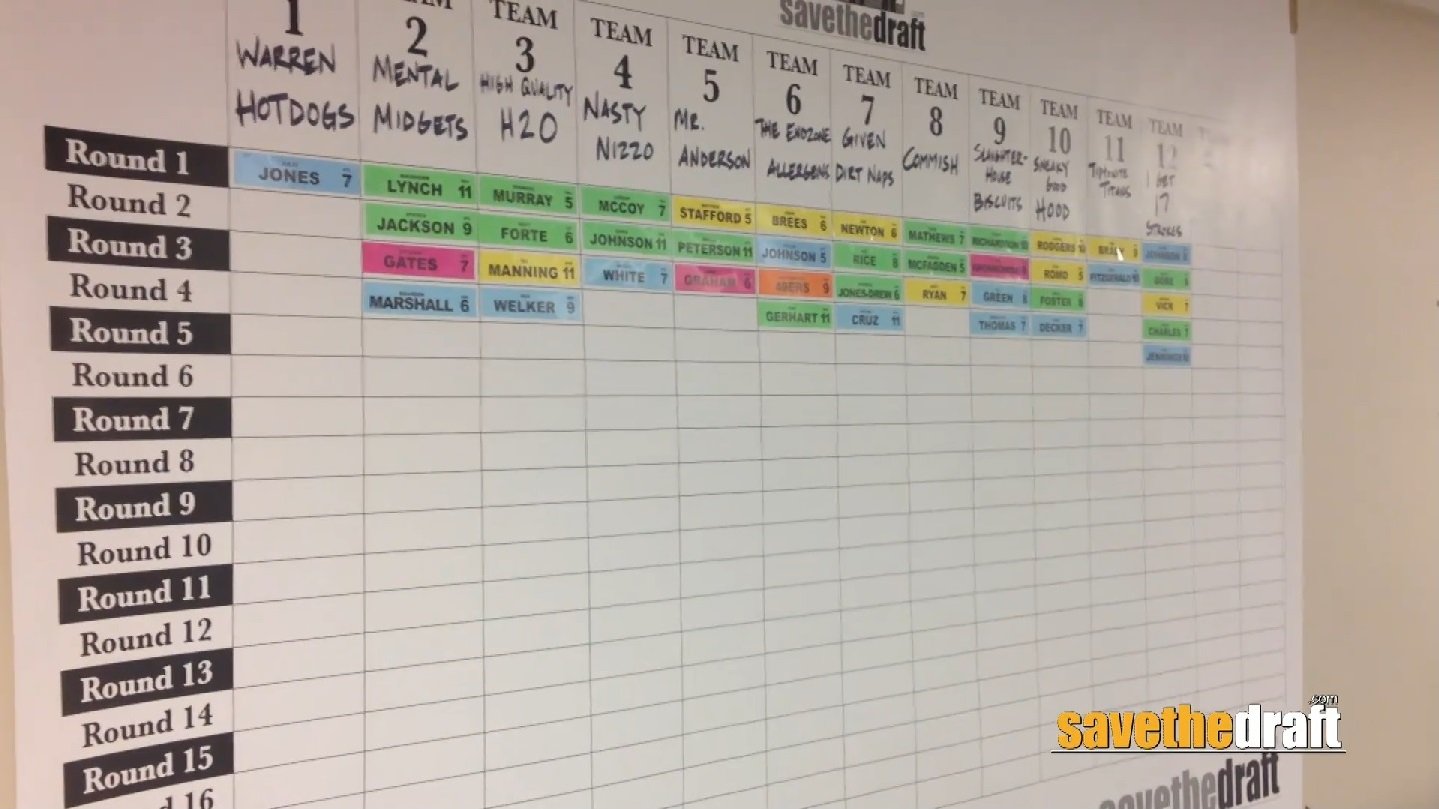 savethedraft
1
WARREN
HOTDOGS
2
MENTAL
MIDGETS
TEAM
3
HIGH QUALITY
H2O
TEAM
4
NASTY
NIZZO
TEAM
5
MR.
ANDERSON
TEAM
6
THE ENDZONE
ALLERGENS
TEAM
7
GIVEN
DIRT NAPS
TEAM
8
COMMISH
TEAM
9
SLAUGHTER-
HOUSE
BISCUITS
TEAM
10
SNEAKY
GOOD
HOOD
TEAM
11
TEAM
12
I GET
17
STROKES
Round 1
JONES 7
LYNCH 11
MURRAY 5
MCCOY 7
STAFFORD 5
BREES 6
NEWTON 6
MATHEWS 7
RICHARDSON 10
RODGERS 10
BRADY 9
JOHNSON
Round 2
JACKSON 9
FORTE 6
JOHNSON 11
PETERSON 11
JOHNSON 5
RICE 8
MCFADDEN 5
ROMO 5
FITZGERALD 10
GORE
Round 3
GATES 7
MANNING 11
WHITE 7
GRAHAM 6
49ERS 9
JONES-DREW 6
RYAN 7
GREEN 8
FOSTER 8
VICK 7
Round 4
MARSHALL 6
WELKER 9
GERHART 11
CRUZ 11
THOMAS 7
DECKER 7
CHARLES 7
Round 5
JENNINGS 10
Round 6
Round 7
Round 8
Round 9
Round 10
Round 11
Round 12
Round 13
Round 14
Round 15
16
savethedraft.com
savethedraft